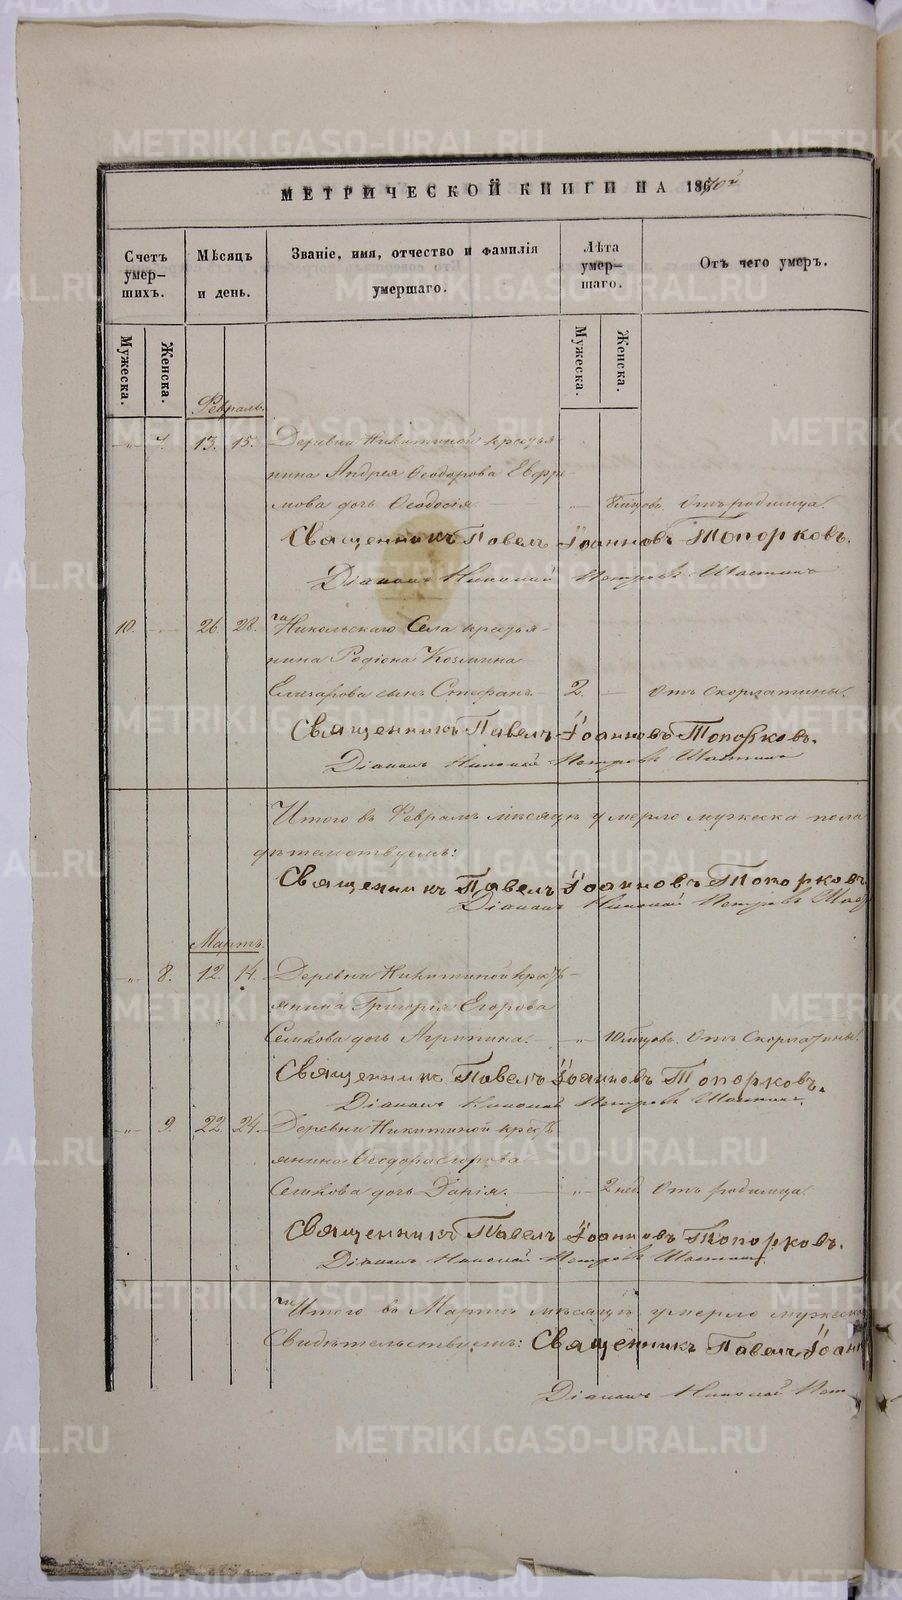 МЕТРИЧЕСКОЙ КНИГИ НА 1870й
Счетъ умершихъ.
Мѣсяцъ и день.
Званіе, имя, отчество и фамилія умершаго.
Лѣта умершаго.
Отъ чего умеръ.
Мужеска.
Женска.
Мужеска.
Женска.
Февраль.
„ 7. 13. 15. Деревни Никитиной крестья-
нина Андрея Ѳеодорова Евфи-
мова дочь Ѳеодосія „ Отъ родимца.
Священникъ Павелъ Іоанновъ Топорковъ.
Діаконъ Николай Петровъ
10. 26. 28. Никольскаго Села крестья-
нина Родіона Козмина
Елизарова сынъ Стефанъ. 2. Отъ скорлатины.
Священникъ Павелъ Іоанновъ Топорковъ.
Діаконъ Николай Петровъ
Итого въ Февралѣ мѣсяцѣ умерло мужеска пола
дѣтельствуемъ:
Священникъ Павелъ Іоанновъ Топорковъ
Діаконъ Николай Петровъ
Мартъ.
„ 8. 12. 14. Деревни Никитиной кресть-
янина Григорія Егорова
Семкова дочь Агрипина. „ Отъ Скорлатины.
Священникъ Павелъ Іоанновъ Топорковъ.
Діаконъ Николай Петровъ
„ 9. 22. 24. Деревни Никитиной кресть-
янина Ѳеодора Егорова
Семкова дочь Дарія. „ 2 нед. Отъ родимца.
Священникъ Павелъ Іоанновъ Топорковъ.
Діаконъ Николай Петровъ
Итого въ Мартѣ мѣсяцѣ умерло мужеска
Свидѣтельствуемъ: Священникъ Павелъ Іоанн
Діаконъ Николай Пет
METRIKI.GASO-URAL.RU